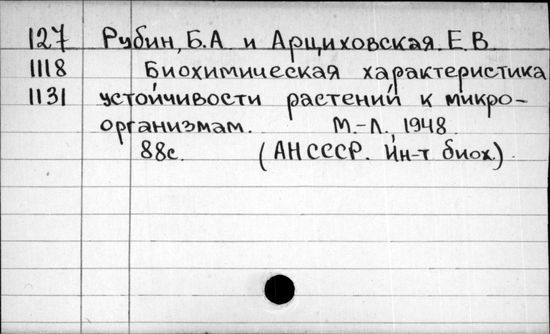 127 Рубин, Б.А и Арциховская. Е.В.
1118 Биохимическая характеристика
1131 устойчивости растений к микро-
организмам. М.-Л., 1948
88с. (АН СССР. Ин-т биох.)